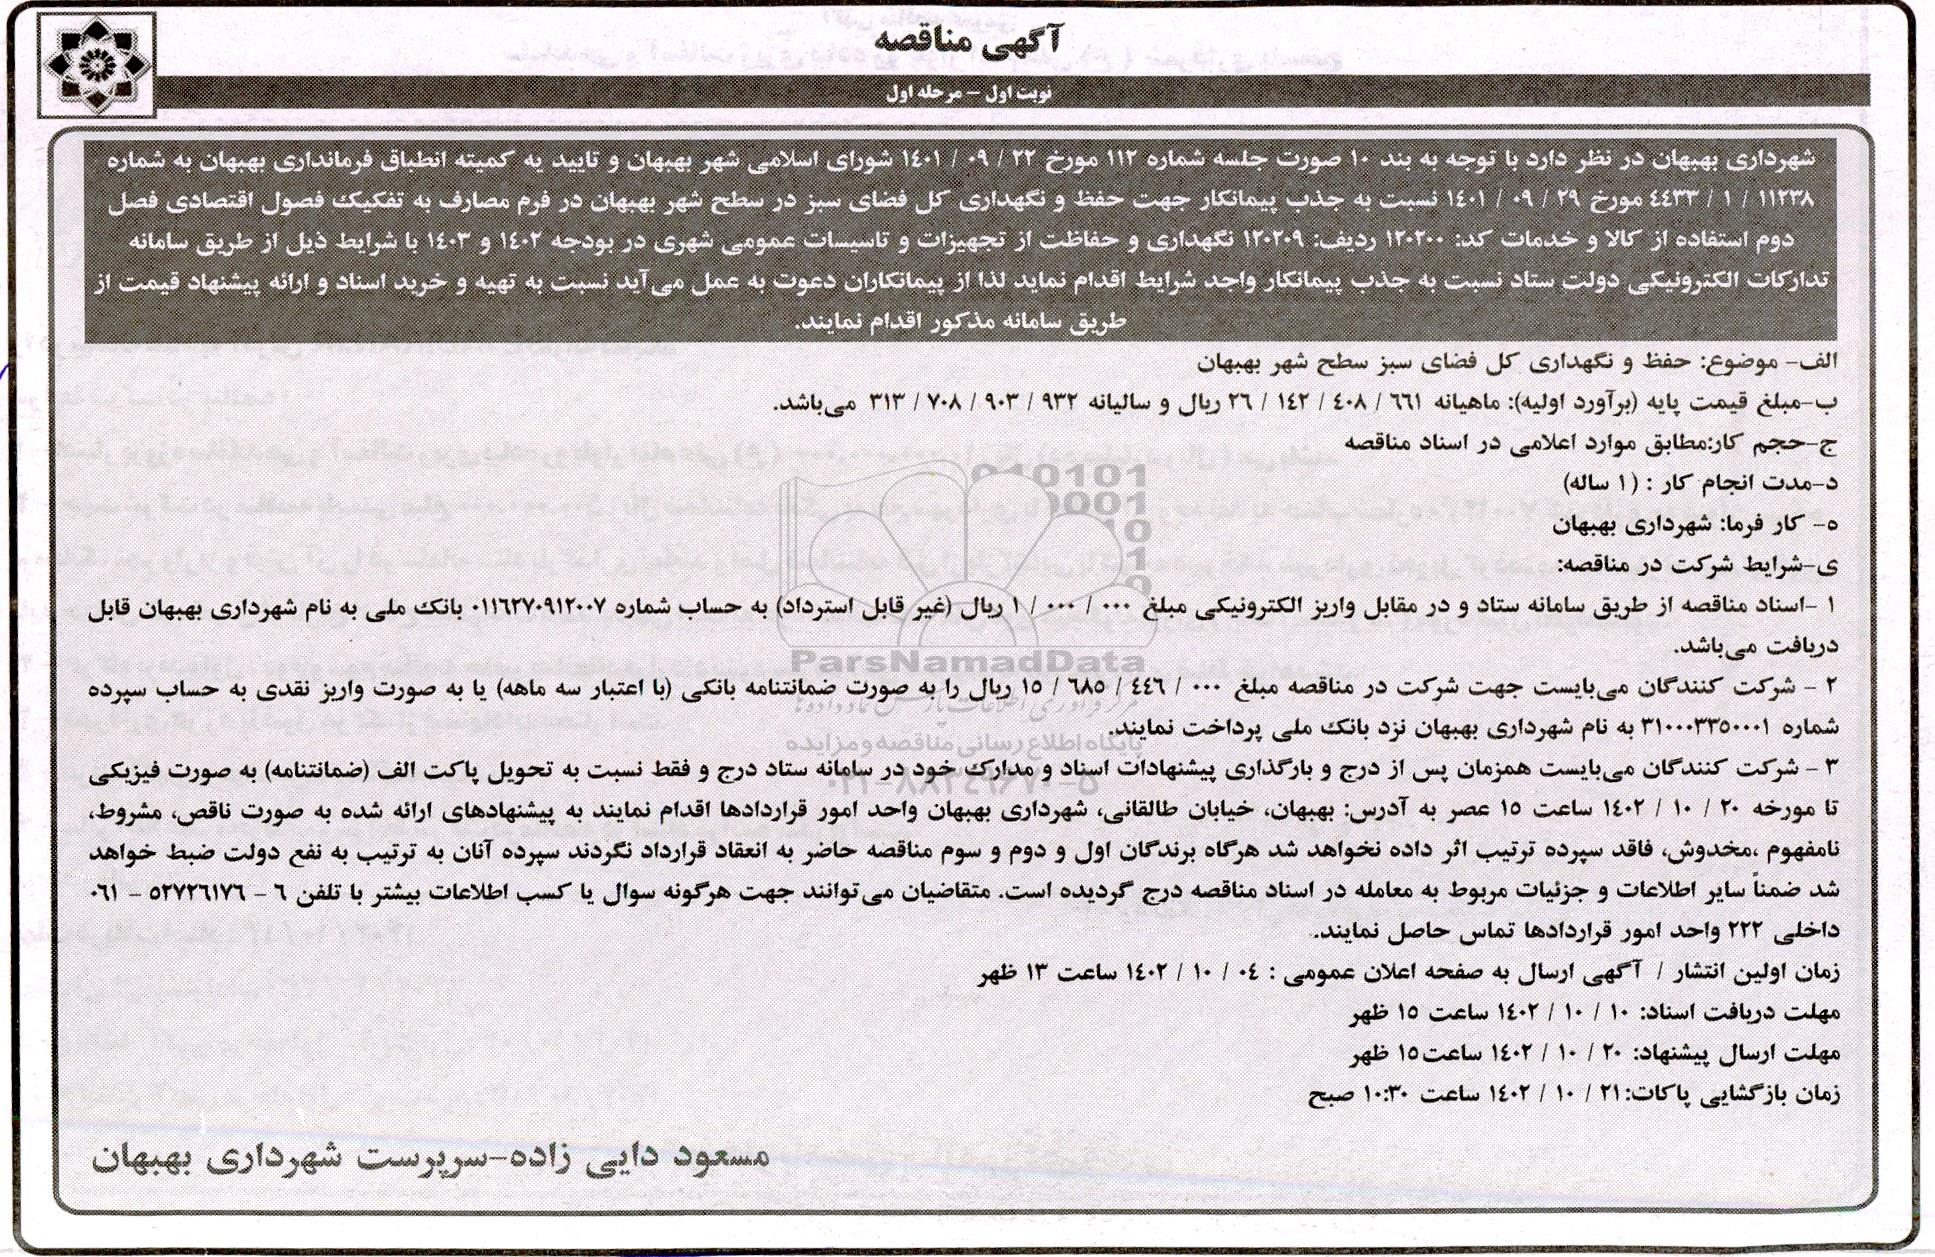 آگهی مناقصه
نوبت اول – مرحله اول
شهرداری بهبهان در نظر دارد با توجه به بند ۱۰ صورت جلسه شماره ۱۱۲ مورخ ۲۲ / ۰۹ / ۱٤۰۱ شورای اسلامی شهر بهبهان و تایید یه کمیته انطباق فرمانداری بهبهان به شماره
۱۱۲۳۸ / ۱ / ٤٤۳۳ مورخ ۲۹ / ۰۹ / ۱٤۰۱ نسبت به جذب پیمانکار جهت حفظ و نگهداری کل فضای سبز در سطح شهر بهبهان در فرم مصارف به تفکیک فصول اقتصادی فصل
دوم استفاده از کالا و خدمات کد: ۱۲۰۲۰۰ ردیف: ۱۲۰۲۰۹ نگهداری و حفاظت از تجهیزات و تاسیسات عمومی شهری در بودجه ۱٤۰۲ و ۱٤۰۳ با شرایط ذیل از طریق سامانه
تدارکات الکترونیکی دولت ستاد نسبت به جذب پیمانکار واجد شرایط اقدام نماید لذا از پیمانکاران دعوت به عمل می‌آید نسبت به تهیه و خرید اسناد و ارائه پیشنهاد قیمت از
طریق سامانه مذکور اقدام نمایند.
الف- موضوع: حفظ و نگهداری کل فضای سبز سطح شهر بهبهان
ب-مبلغ قیمت پایه (برآورد اولیه): ماهیانه ٦٦۱ / ٤۰۸ / ۱٤۲ / ۲٦ ریال و سالیانه ۹۳۲ / ۹۰۳ / ۷۰۸ / ۳۱۳ می‌باشد.
ج-حجم کار:مطابق موارد اعلامی در اسناد مناقصه
د-مدت انجام کار : (۱ ساله)
ه- کار فرما: شهرداری بهبهان
ی-شرایط شرکت در مناقصه:
۱ -اسناد مناقصه از طریق سامانه ستاد و در مقابل واریز الکترونیکی مبلغ ۰۰۰ / ۰۰۰ / ۱ ریال (غیر قابل استرداد) به حساب شماره ۰۱۱٦۲۷۰۹۱۲۰۰۷ بانک ملی به نام شهرداری بهبهان قابل
دریافت می‌باشد.
۲ - شرکت کنندگان می‌بایست جهت شرکت در مناقصه مبلغ ۰۰۰ / ٤٤٦ / ٦۸۵ / ۱۵ ریال را به صورت ضمانتنامه بانکی (با اعتبار سه ماهه) یا به صورت واریز نقدی به حساب سپرده
شماره ۳۱۰۰۰۳۳۵۰۰۰۱ به نام شهرداری بهبهان نزد بانک ملی پرداخت نمایند.
۳ - شرکت کنندگان می‌بایست همزمان پس از درج و بارگذاری پیشنهادات اسناد و مدارک خود در سامانه ستاد درج و فقط نسبت به تحویل پاکت الف (ضمانتنامه) به صورت فیزیکی
تا مورخه ۲۰ / ۱۰ / ۱٤۰۲ ساعت ۱۵ عصر به آدرس: بهبهان، خیابان طالقانی، شهرداری بهبهان واحد امور قراردادها اقدام نمایند به پیشنهادهای ارائه شده به صورت ناقص، مشروط،
نامفهوم ،مخدوش، فاقد سپرده ترتیب اثر داده نخواهد شد هرگاه برندگان اول و دوم و سوم مناقصه حاضر به انعقاد قرارداد نگردند سپرده آنان به ترتیب به نفع دولت ضبط خواهد
شد ضمناً سایر اطلاعات و جزئیات مربوط به معامله در اسناد مناقصه درج گردیده است. متقاضیان می‌توانند جهت هرگونه سوال یا کسب اطلاعات بیشتر با تلفن ٦ - ۵۲۷۲٦۱۷٦ - ۰٦۱
داخلی ۲۲۲ واحد امور قراردادها تماس حاصل نمایند.
زمان اولین انتشار / آگهی ارسال به صفحه اعلان عمومی : ۰٤ / ۱۰ / ۱٤۰۲ ساعت ۱۳ ظهر
مهلت دریافت اسناد: ۱۰ / ۱۰ / ۱٤۰۲ ساعت ۱۵ ظهر
مهلت ارسال پیشنهاد: ۲۰ / ۱۰ / ۱٤۰۲ ساعت۱۵ ظهر
زمان بازگشایی پاکات:۲۱ / ۱۰ / ۱٤۰۲ ساعت ۱۰:۳۰ صبح
مسعود دایی زاده-سرپرست شهرداری بهبهان
ParsNamadData
پایگاه اطلاع رسانی مناقصه و مزایده